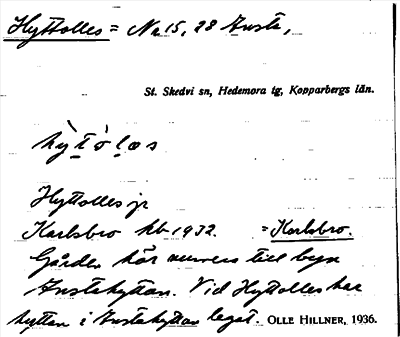 Hyttolles = No 15, 28 Ansta,
St. Skedvi sn, Hedemora tg, Kopparbergs län.
hỳtólas
Hyttolles jr
Karlsbro kb 1932. = Karlsbro.
Gården hör numera till byn
Anstahyttan. Vid Hyttolles har
hyttan i Anstahyttan legat. OLLE HILLNER, 1936.